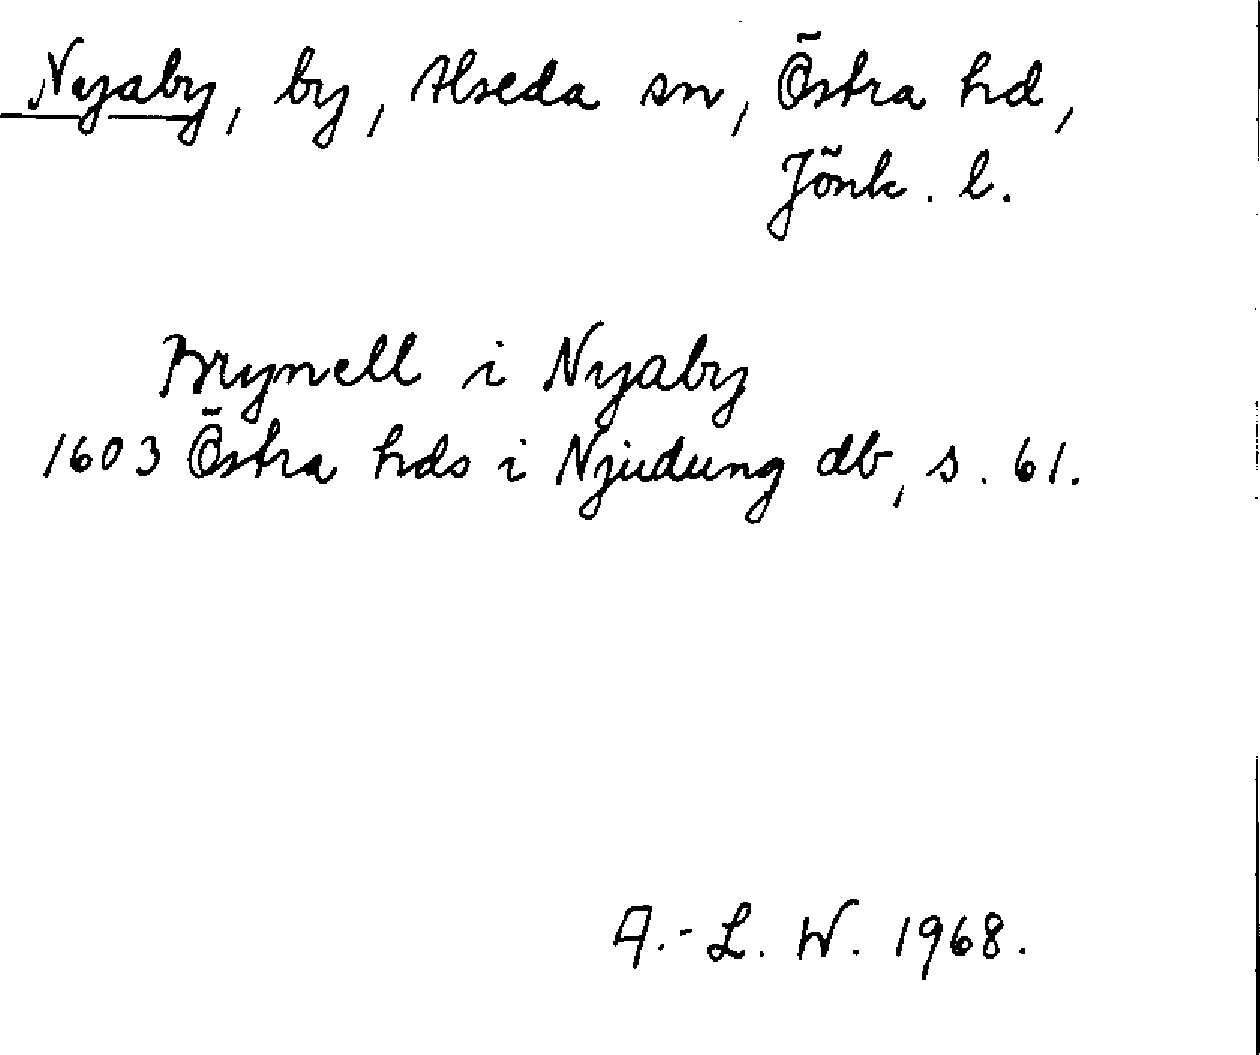 Nyaby, by, Alseda sn, Östra hd,
Jönk. l.
Brynell i Nyaby
1603 Östra hds i Njudung db, s. 61.
A.-L. W. 1968.